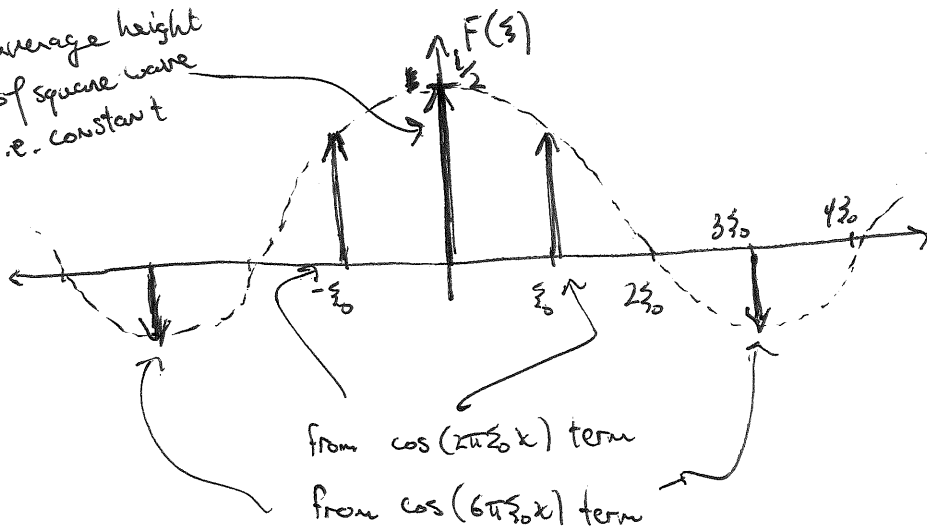 average height
of square wave
i.e. constant
F(ξ)
1/2
3ξ₀
4ξ₀
-ξ₀
ξ₀
2ξ₀
from cos(2πξ₀x) term
from cos(6πξ₀x) term